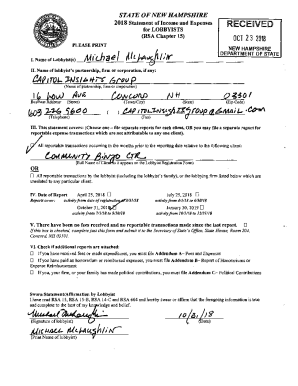 STATE OF NEW HAMPSHIRE
2018 Statement of Income and Expenses
for LOBBYISTS
(RSA Chapter 15)
RECEIVED
OCT 23 2018
NEW HAMPSHIRE
DEPARTMENT OF STATE
PLEASE PRINT
I. Name of Lobbyist(s) Michael McLaughlin
II. Name of lobbyist's partnership, firm or corporation, if any:
CAPITOL INSIGHTS GROUP
(Name of partnership, firm or corporation)
16 Low AVE CONCORD NH 03301
Business Address (Street) (Town/City) (State) (Zip Code)
603 226 5600 CAPITOLINSIGHTSGROUP@GMAIL.COM
(Telephone) (Fax)
III. This statement covers: (Choose one - file separate reports for each client, OR you may file a separate report for
reportable expense transactions which are not attributable to any one client).
All reportable transactions occurring in the months prior to the reporting date relative to the following client:
COMMUNITY BINGO CTR
(Full Name of Client as it appears on the Lobbyist Registration Form)
OR
All reportable transactions by the lobbyist (including the lobbyist's family), or the lobbying firm listed below which are
unrelated to any particular client.
IV. Date of Report April 25, 2018 July 25, 2018
Reports cover:
October 31, 2018
V. There have been no fees received and no reportable transactions made since the last report.
If this box is checked, complete just this form and submit it to the Secretary of State's Office, State House, Room 204,
Concord, NH 03301
VI. Check if additional reports are attached:
If you have received fees or made expenditures, you must file Addendum A- Fees and Expenses
If you have paid an honorarium or reimbursed expenses, you must file Addendum B- Report of Honorariums or
Expense Reimbursement
If you, your firm, or your family has made political contributions, you must file Addendum C- Political Contributions
Sworn Statement/Affirmation by Lobbyist
I have read RSA 15, RSA 15-B, RSA 14-C and RSA 664 and hereby swear or affirm that the foregoing information is true
and complete to the best of my knowledge and belief.
Michael McLaughlin 10/21/18
(Signature of lobbyist) (Date)
MICHAEL McLAUGHLIN
(Print Name of lobbyist)